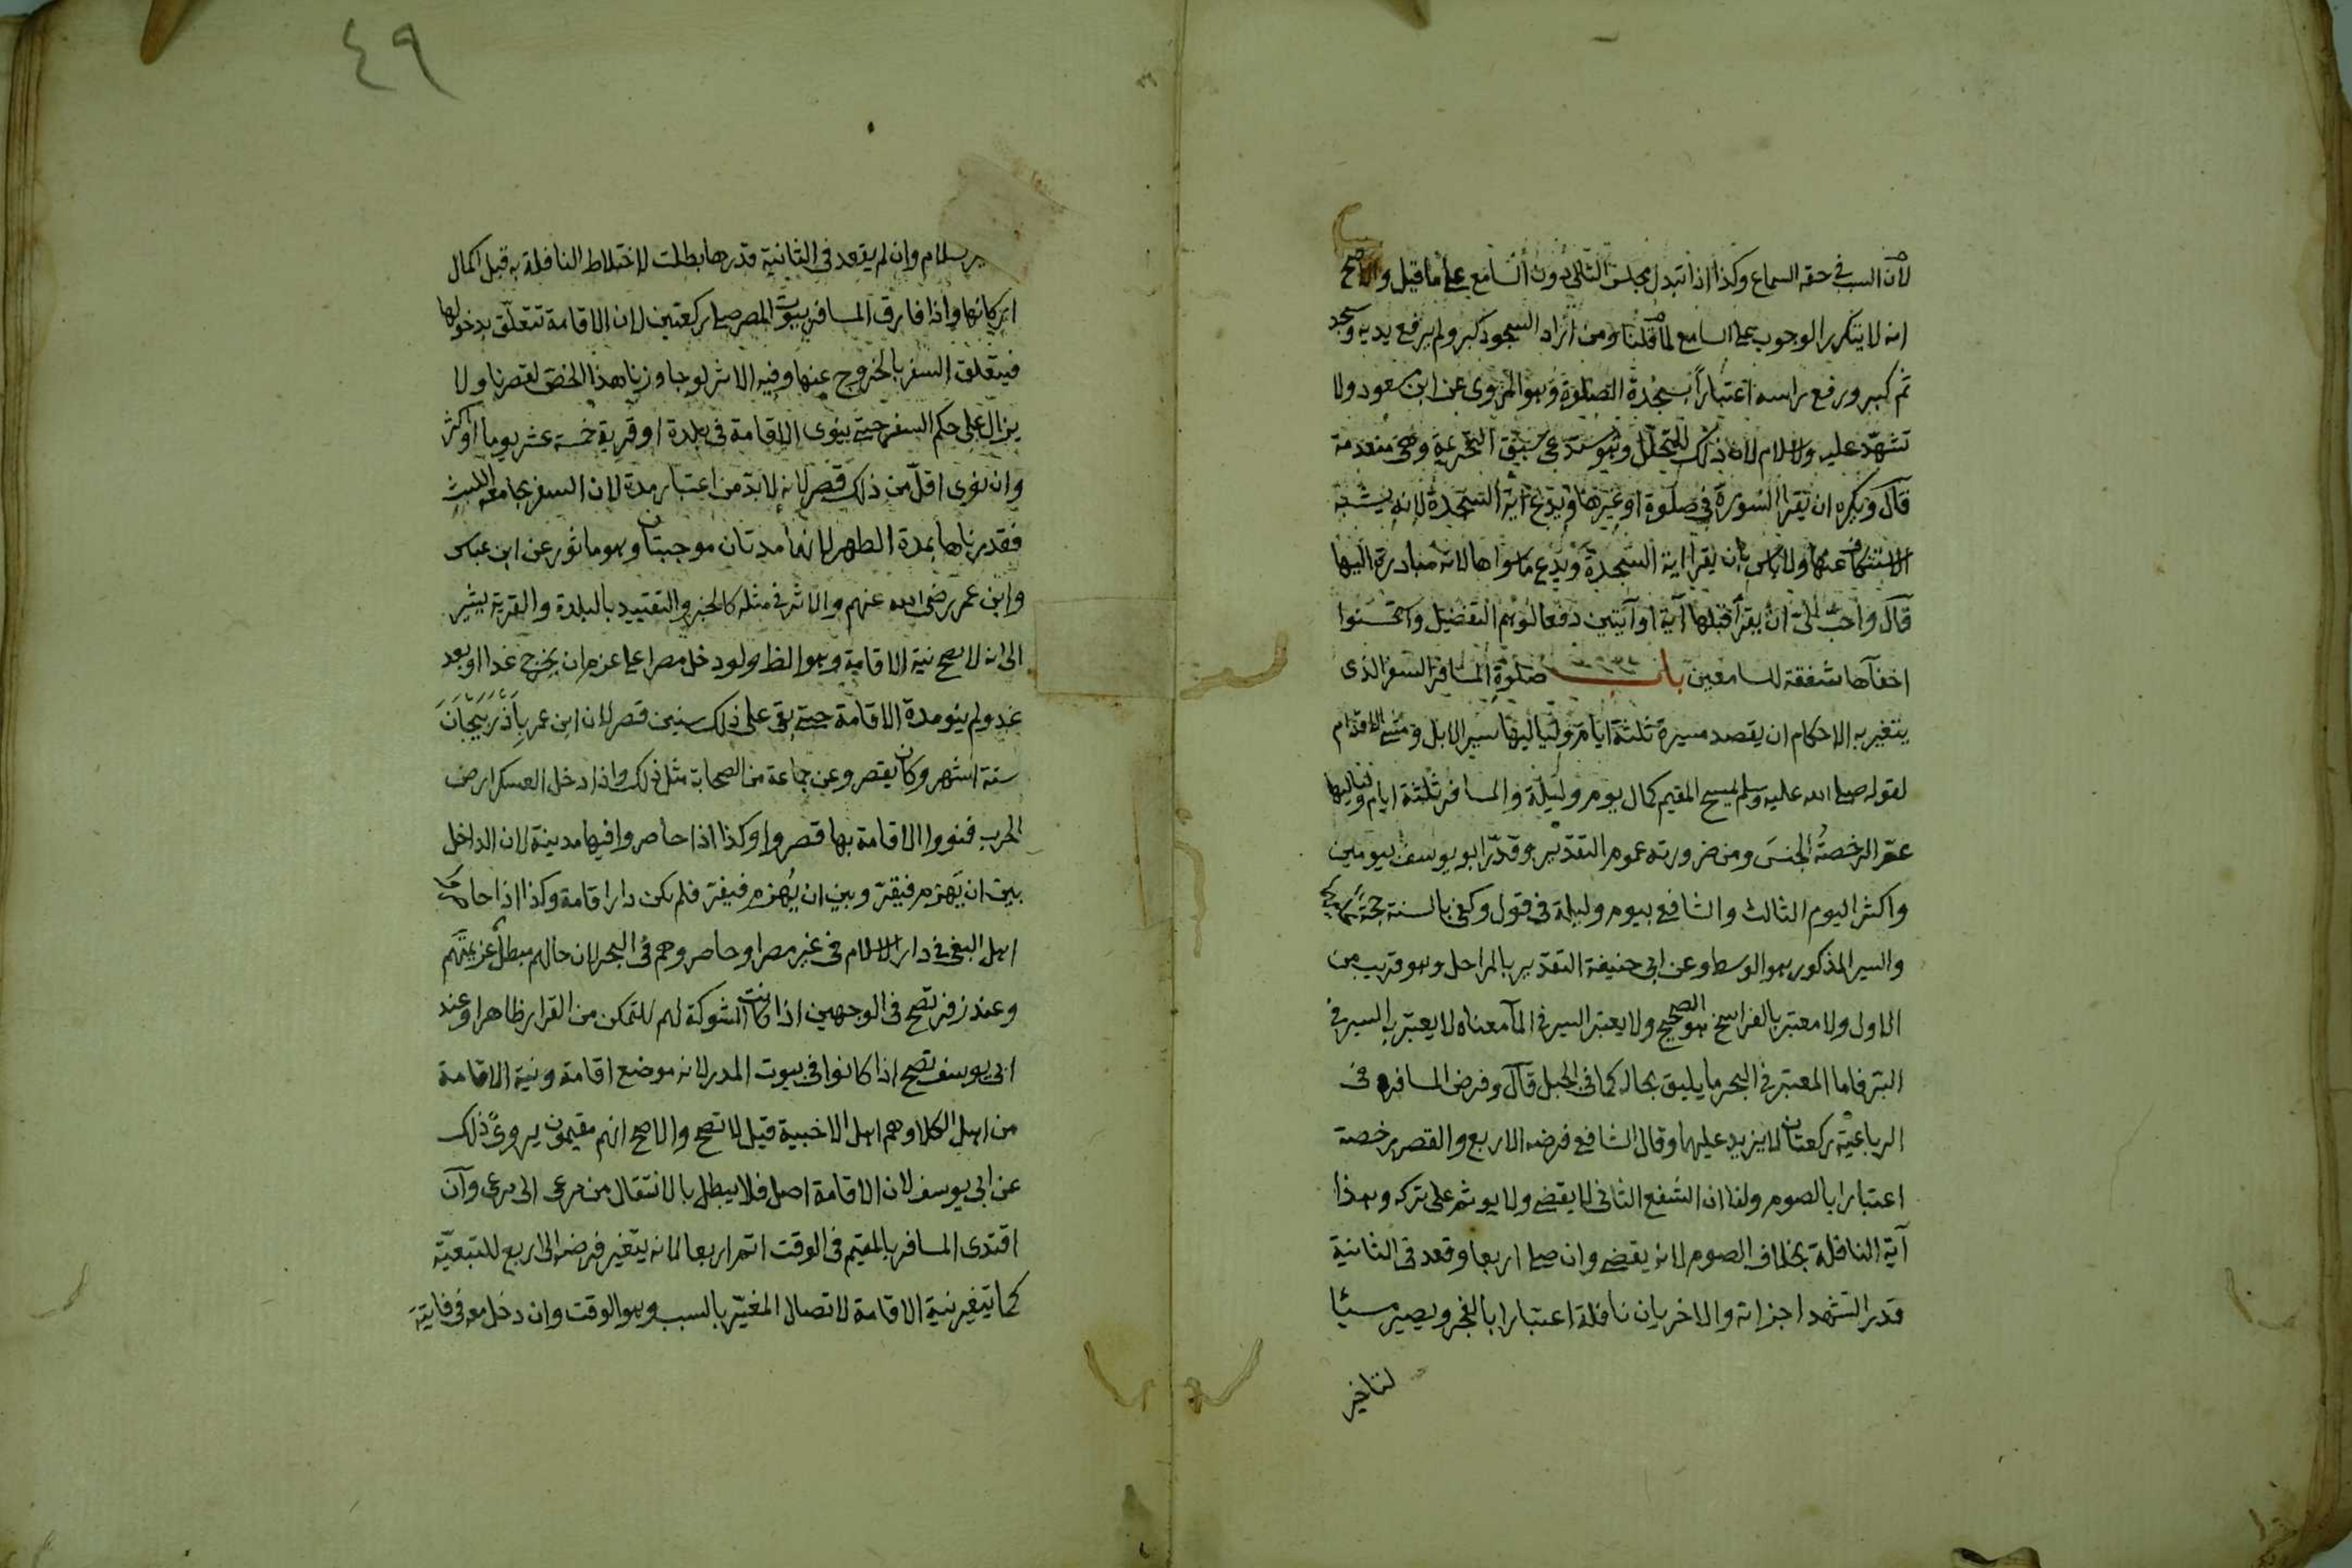 لان السبب في حقه السماع وكذا اذا تبدل مجلس التالي دون السامع على ما قيل والاصح
انه لا يتكرر الوجوب على السامع لما قلنا ومن اراد السجود كبر ولم يرفع يديه وسجد
ثم كبر ورفع راسه اعتباراً بسجدة الصلوة وهو المروى عن ابن مسعود ولا
تشهّد عليه ولا سلام لان ذلك للتحلّل وهو يستدعى سبق التحريمة وهى منعدمة
قال ويكره ان يقرا السورة في صلوة او غيرها ويدع آية السجدة لانه يشبه
الاستنكاف عنها ولا باس بان يقرا اية السجدة ويدع ما سواها لانه مبادرة اليها
قال واحبّ الىّ ان يقرأ قبلها آية او آيتين دفعا لوهم التفضيل واستحسنوا
اخفآءها شفقة للسامعين باب صلوة المسافر السفر الذى
يتغير به الاحكام ان يقصد مسيرة ثلثة ايام ولياليها سير الابل ومشى الاقدام
لقوله صلى الله عليه وسلم يمسح المقيم كمال يوم وليلة والمسافر ثلثة ايام ولياليها
عمّ الرخصةُ الجنسَ ومن ضرورته عموم التقدير وقدّر ابو يوسف بيومين
واكثر اليوم الثالث والشافعى بيوم وليلة في قول وكفى بالسنة حجة عليهما
والسير المذكور هو الوسط وعن ابى حنيفة التقدير بالمراحل وهو قريب من
الاول ولا معتبر بالفراسخ هو الصحيح ولا يعتبر السير في المآء معناه لا يعتبر به السير في
البرّ فاما المعتبر في البحر ما يليق بحاله كما في الجبل قال وفرض المسافر فى
الرباعيّة ركعتان لا يزيد عليهما وقال الشافعى فرضه الاربع والقصر رخصة
اعتبارا بالصوم ولنا ان الشفع الثانى لا يقضى ولا يوثم على تركه وهذا
آية النافلة بخلاف الصوم لانه يقضى وان صلى اربعا وقعد في الثانية
قدر التشهد اجزاته والاخريان نافلة اعتبارا بالفجر ويصير مسيئا
لتاخير
٤٩
السلام وان لم يقعد في الثانية قدرها بطلت لاختلاط النافلة به قبل اكمال
اركانها واذا فارق المسافر بيوت المصر صلى ركعتين لان الاقامة تتعلّق بدخولها
فيتعلق السفر بالخروج عنها وفيه الاثر لو جاوزنا هذا الخصّ لقصرنا ولا
يزال على حكم السفر حتى ينوى الاقامة في بلدة او قرية خمسة عشر يوما او اكثر
وان نوى اقلّ من ذلك قصر لانه لا بدّ من اعتبار مدة لان السفر يجامعه اللبث
فقدرناها بمدة الطهر لانهما مدتان موجبتان وهو ماثور عن ابن عباس
وابن عمر رضى الله عنهم والاثر في مثله كالخبر والتقييد بالبلدة والقرية يشير
الى انه لا يصح نية الاقامة وهو الظ ولو دخل مصرا على عزم ان يخرج غدا او بعد
غد ولم ينو مدة الاقامة حتى بقى على ذلك سنين قصر لان ابن عمر بِأَذْرَبِيجَانَ
ستة اشهر وكان يقصر وعن جماعة من الصحابة مثل ذلك واذا دخل العسكر ارض
الحرب فنووا الاقامة بها قصروا وكذا اذا حاصروا فيها مدينة لان الداخل
بين ان يَهزم فيقرّ وبين ان يُهزم فيفرّ فلم يكن دار اقامة وكذا اذا حاصروا
اهل البغى في دار الاسلام في غير مصر او حاصروهم في البحر لان حالهم مبطل عزيمتهم
وعند زفر تصح في الوجهين اذا كانت الشوكة لهم للتمكن من القرار ظاهرا وعند
ابى يوسف تصح اذا كانوا في بيوت المدر لانه موضع اقامة ونية الاقامة
من اهل الكلا وهم اهل الاخبية قيل لا تصح والاصح انهم مقيمون يروى ذلك
عن ابى يوسف لان الاقامة اصل فلا يبطل بالانتقال من مرعى الى مرعى وان
اقتدى المسافر بالمقيم في الوقت اتم اربعا لانه يتغير فرضه الى اربع للتبعيّة
كما يتغير بنية الاقامة لاتصال المغيّر بالسبب وهو الوقت وان دخل معه في فايتة